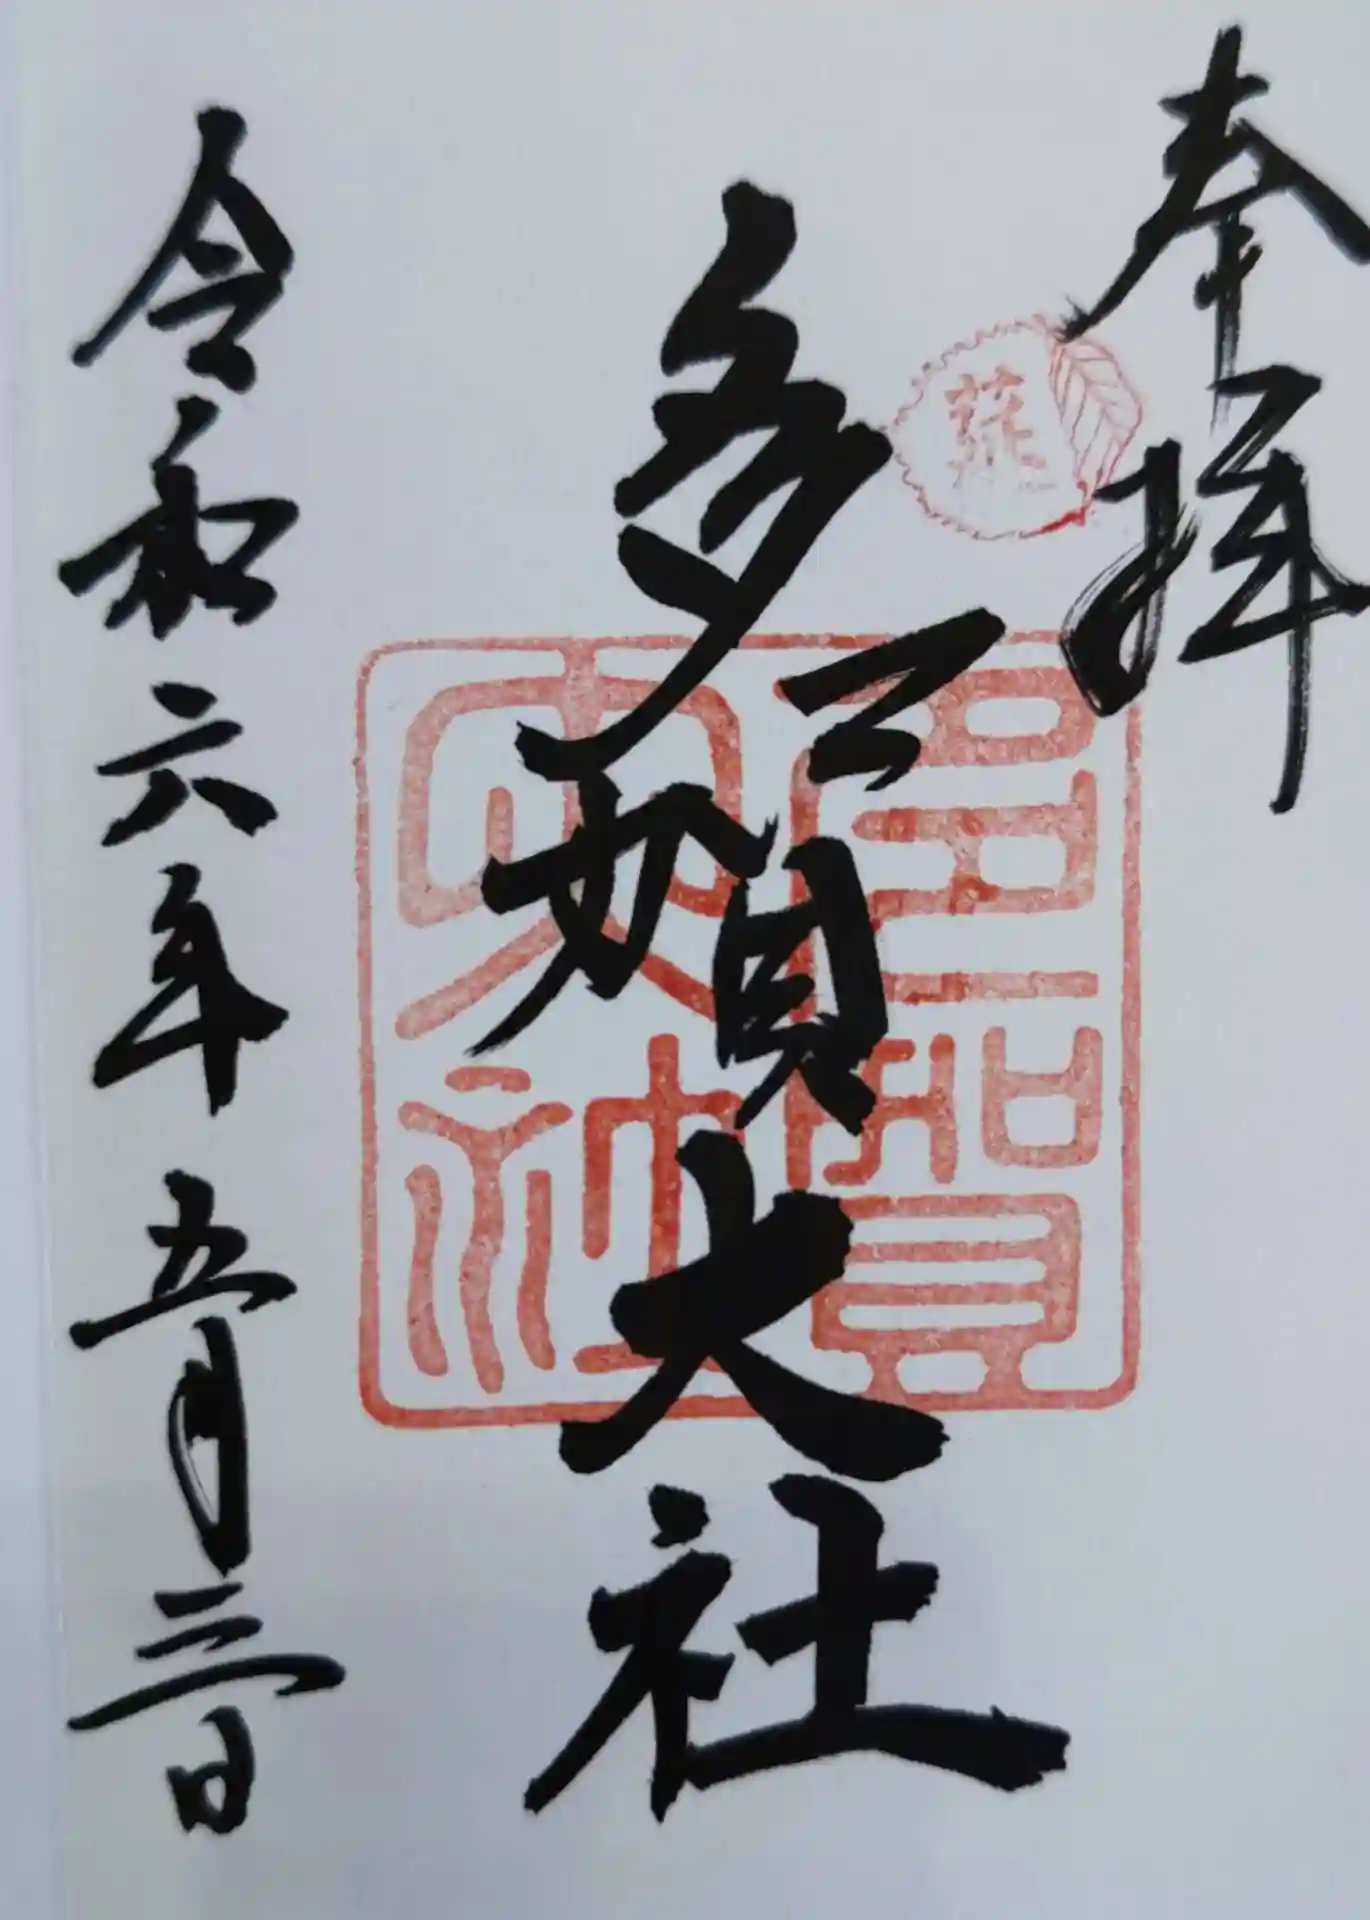 奉拝
多賀大社
多賀大社
令和六年五月三日